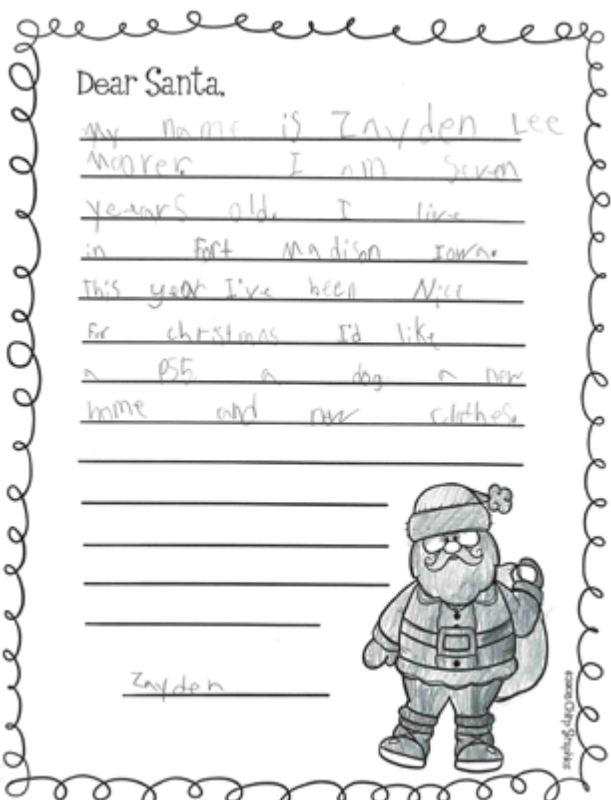 Dear Santa,
My name is Zayden Lee
Moorer. I am Seven
yeears old. I live
in Fort Madison Iowa.
This year I've been Nice
For christmas I'd like
a PS5 a dog. a new
home and new clothes.
Zayden